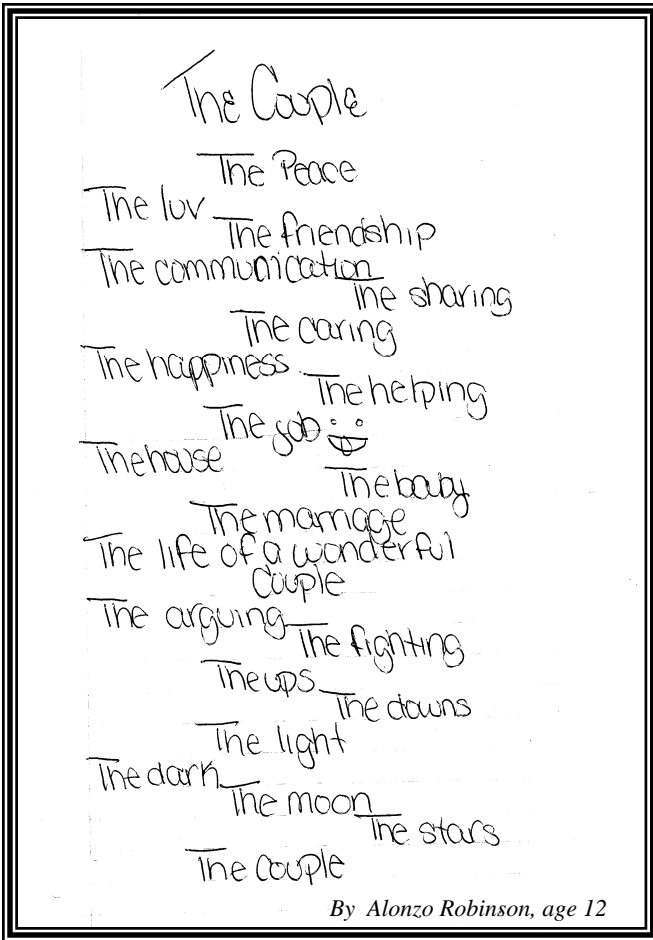 The Couple
The Peace
The luv
The friendship
The communication
The sharing
The caring
The happiness
The helping
The job
The house
The baby
The marriage
The life of a wonderful
Couple
The arguing
The fighting
The ups
The downs
The light
The dark
The moon
The stars
The couple
By Alonzo Robinson, age 12